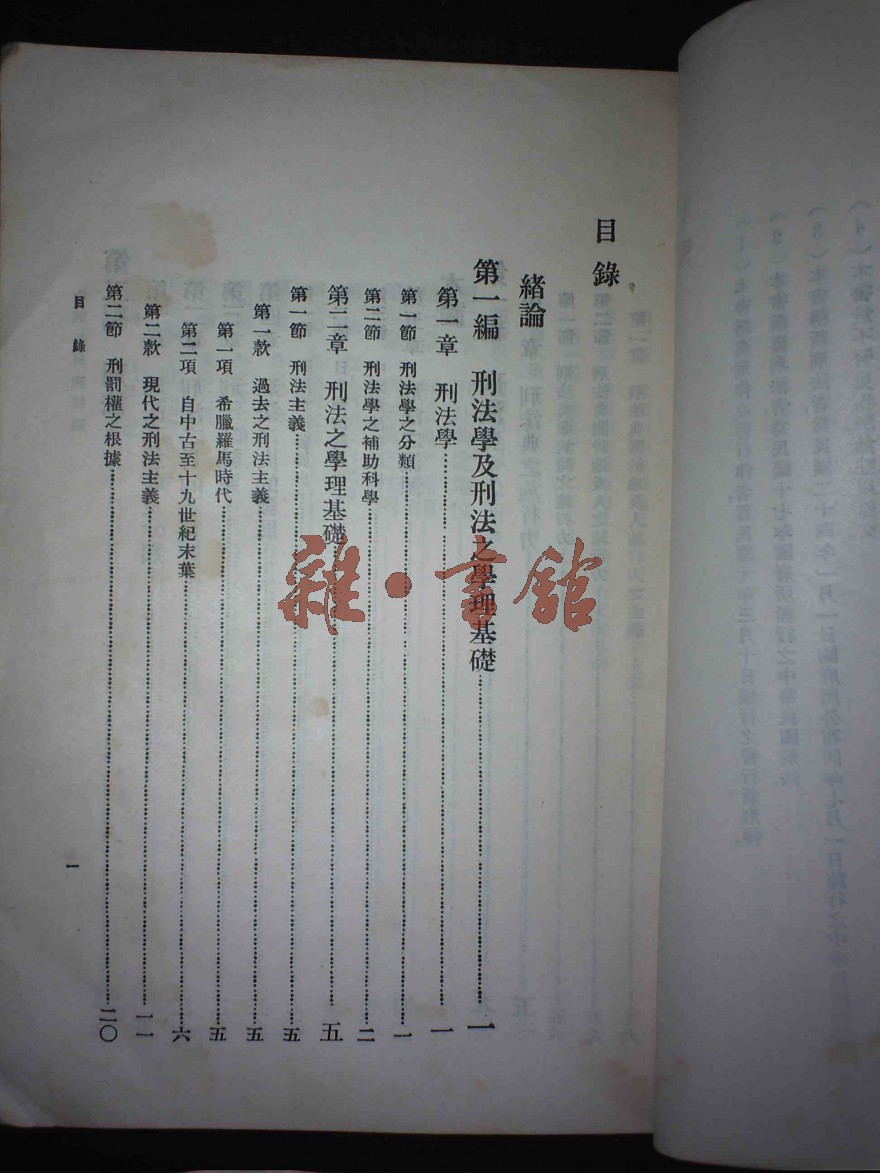 目錄
緒論
第一編 刑法學及刑法之學理基礎……一
第一章 刑法學……一
第一節 刑法學之分類……一
第二節 刑法學之補助科學……二
第二章 刑法之學理基礎……五
第一節 刑法主義……五
第一款 過去之刑法主義……五
第一項 希臘羅馬時代……五
第二項 自中古至十九世紀末葉……六
第二款 現代之刑法主義……一一
第二節 刑罰權之根據……二〇
目錄
一
雜·書館